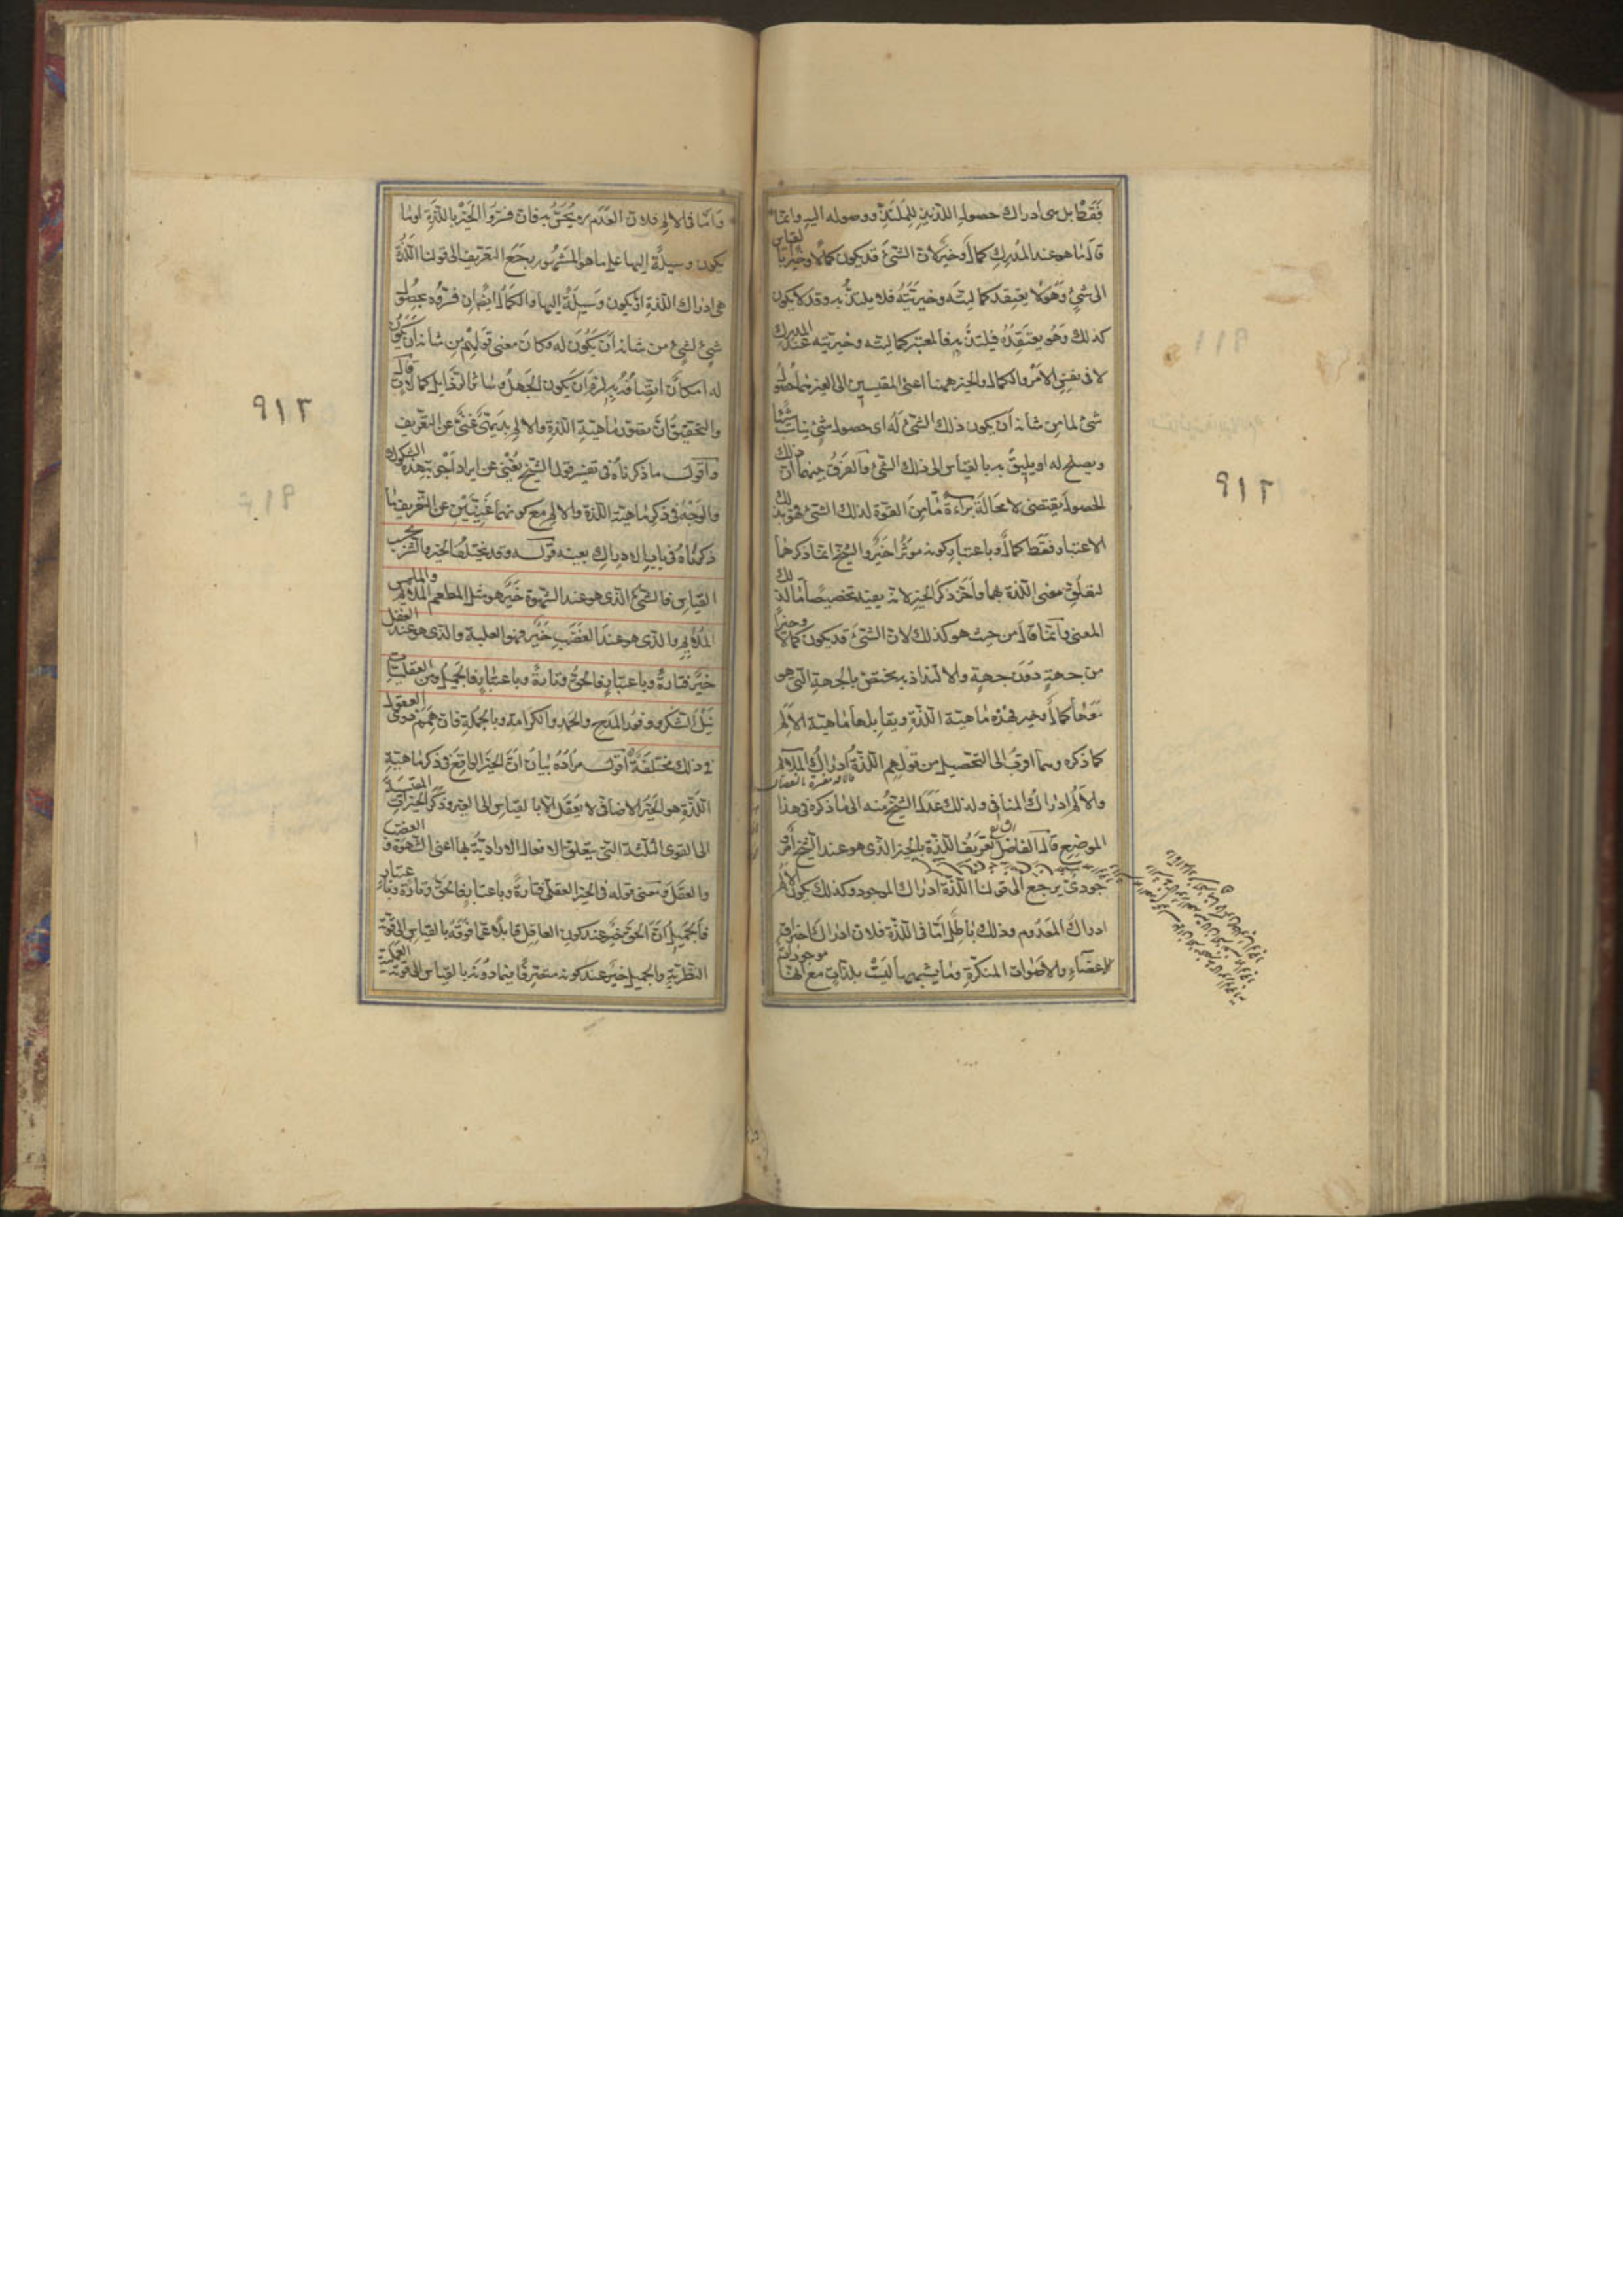 فقط بل هى ادراك حصول اللذيذ للملتذ ووصوله اليه وانما
قال ما هو عند المدرك كمال وخير لان الشئ قد يكون كمالا وخيرا بالقياس
الى شئ وهو لا يعتقد كماليته وخيريته فلا يلتذ به وقد لا يكون
كذلك وهو يعتقده فيلتذ به فالمعتبر كماليته وخيريته عند المدرك
لا فى نفس الامر والكمال والخير ههنا اعنى المقيسين الى الغير هما حصول
شئ لما من شانه ان يكون ذلك الشئ له اى حصول شئ يناسب شيئا
ويصلح له او يليق به بالقياس الى ذلك الشئ والفرق بينهما ان ذلك
الحصول يقتضى لا محالة براءة ما من القوة لذلك الشئ فهو بذلك
الاعتبار فقط كمال وباعتبار كونه موثرا خير والشيخ انما ذكرهما
لتعلق معنى اللذة بهما واخر ذكر الخير لانه يفيد تخصيصا ما لذلك
المعنى وانما قال من حيث هو كذلك لان الشئ قد يكون كمالا وخيرا
من جهة دون جهة والالتذاذ به يختص بالجهة التى هو
معها كمال وخير فهذه ماهية اللذة ويقابلها ماهية الالم
كما ذكره وهما اقرب الى التحصيل من قولهم اللذة ادراك الملائم
والالم ادراك المنافى ولذلك عدل الشيخ منه الى ما ذكره فى هذا
الموضع قال الفاضل تعريف اللذة بالخير الذى هو عند الشيخ امر و
جودى يرجع الى قولنا اللذة ادراك الموجود وكذلك يكون الالم
ادراك المعدوم وذلك باطل اما فى اللذة فلان ادراك احتراق
الاعضاء والاصوات المنكرة وما يشبهها ليست بلذات مع انها موجودات
واما فى الالم فلان العدم لا يحس به فان فسروا الخير باللذة او ما
يكون وسيلة اليها على ما هو المشهور رجع التعريف الى قولنا اللذة
هى ادراك اللذة او يكون وسيلة اليها والكمال ايضا ان فسروه بحصول
شئ لشئ من شانه ان يكون له وكان معنى قولهم من شانه ان يكون
له امكان اتصافه به لزم ان يكون الجهل وسائر الرذايل كمالات قال
والتحقيق ان تصور ماهية اللذة والالم بديهى غنى عن التعريف
واقول ما ذكرناه فى تفسير قول الشيخ يغنى عن ايراد اجوبة هذه الشكوك
والوجه فى ذكر ماهية اللذة والالم مع كونهما غنيين عن التعريف ما
ذكرناه فى باب الادراك بعينه قوله وقد يختلف الخير والشر بحسب
القياس فالشئ الذى هو عند الشهوة خير هو مثل المطعم الملائم والملمس
الملائم والذى هو عند الغضب خير فهو الغلبة والذى هو عند العقل
خير فتارة وباعتبار فالحق وتارة وباعتبار فالجميل ومن العقليات
نيل الشكر ووفور المدح والحمد والكرامة وبالجملة فان همم ذوى العقول
فى ذلك مختلفة اقول مراده بيان ان الخير الواقع فى ذكر ماهية
اللذة هو الخير الاضافى لا يعقل الا بالقياس الى الغير وذكر الخيرات المقيسة
الى القوى الثلثة التى يتعلق الافعال الارادية بها اعنى الشهوة والغضب
والعقل ومعنى قوله فى الخير العقلى فتارة وباعتبار فالحق وتارة وباعتبار
فالجميل ان الحق خير عند كون العاقل قابلا عما فوقه بالقياس الى قوته
النظرية والجميل خير عند كونه متصرفا فيما دونه بالقياس الى قوته العملية
٩١٢
٩١٢